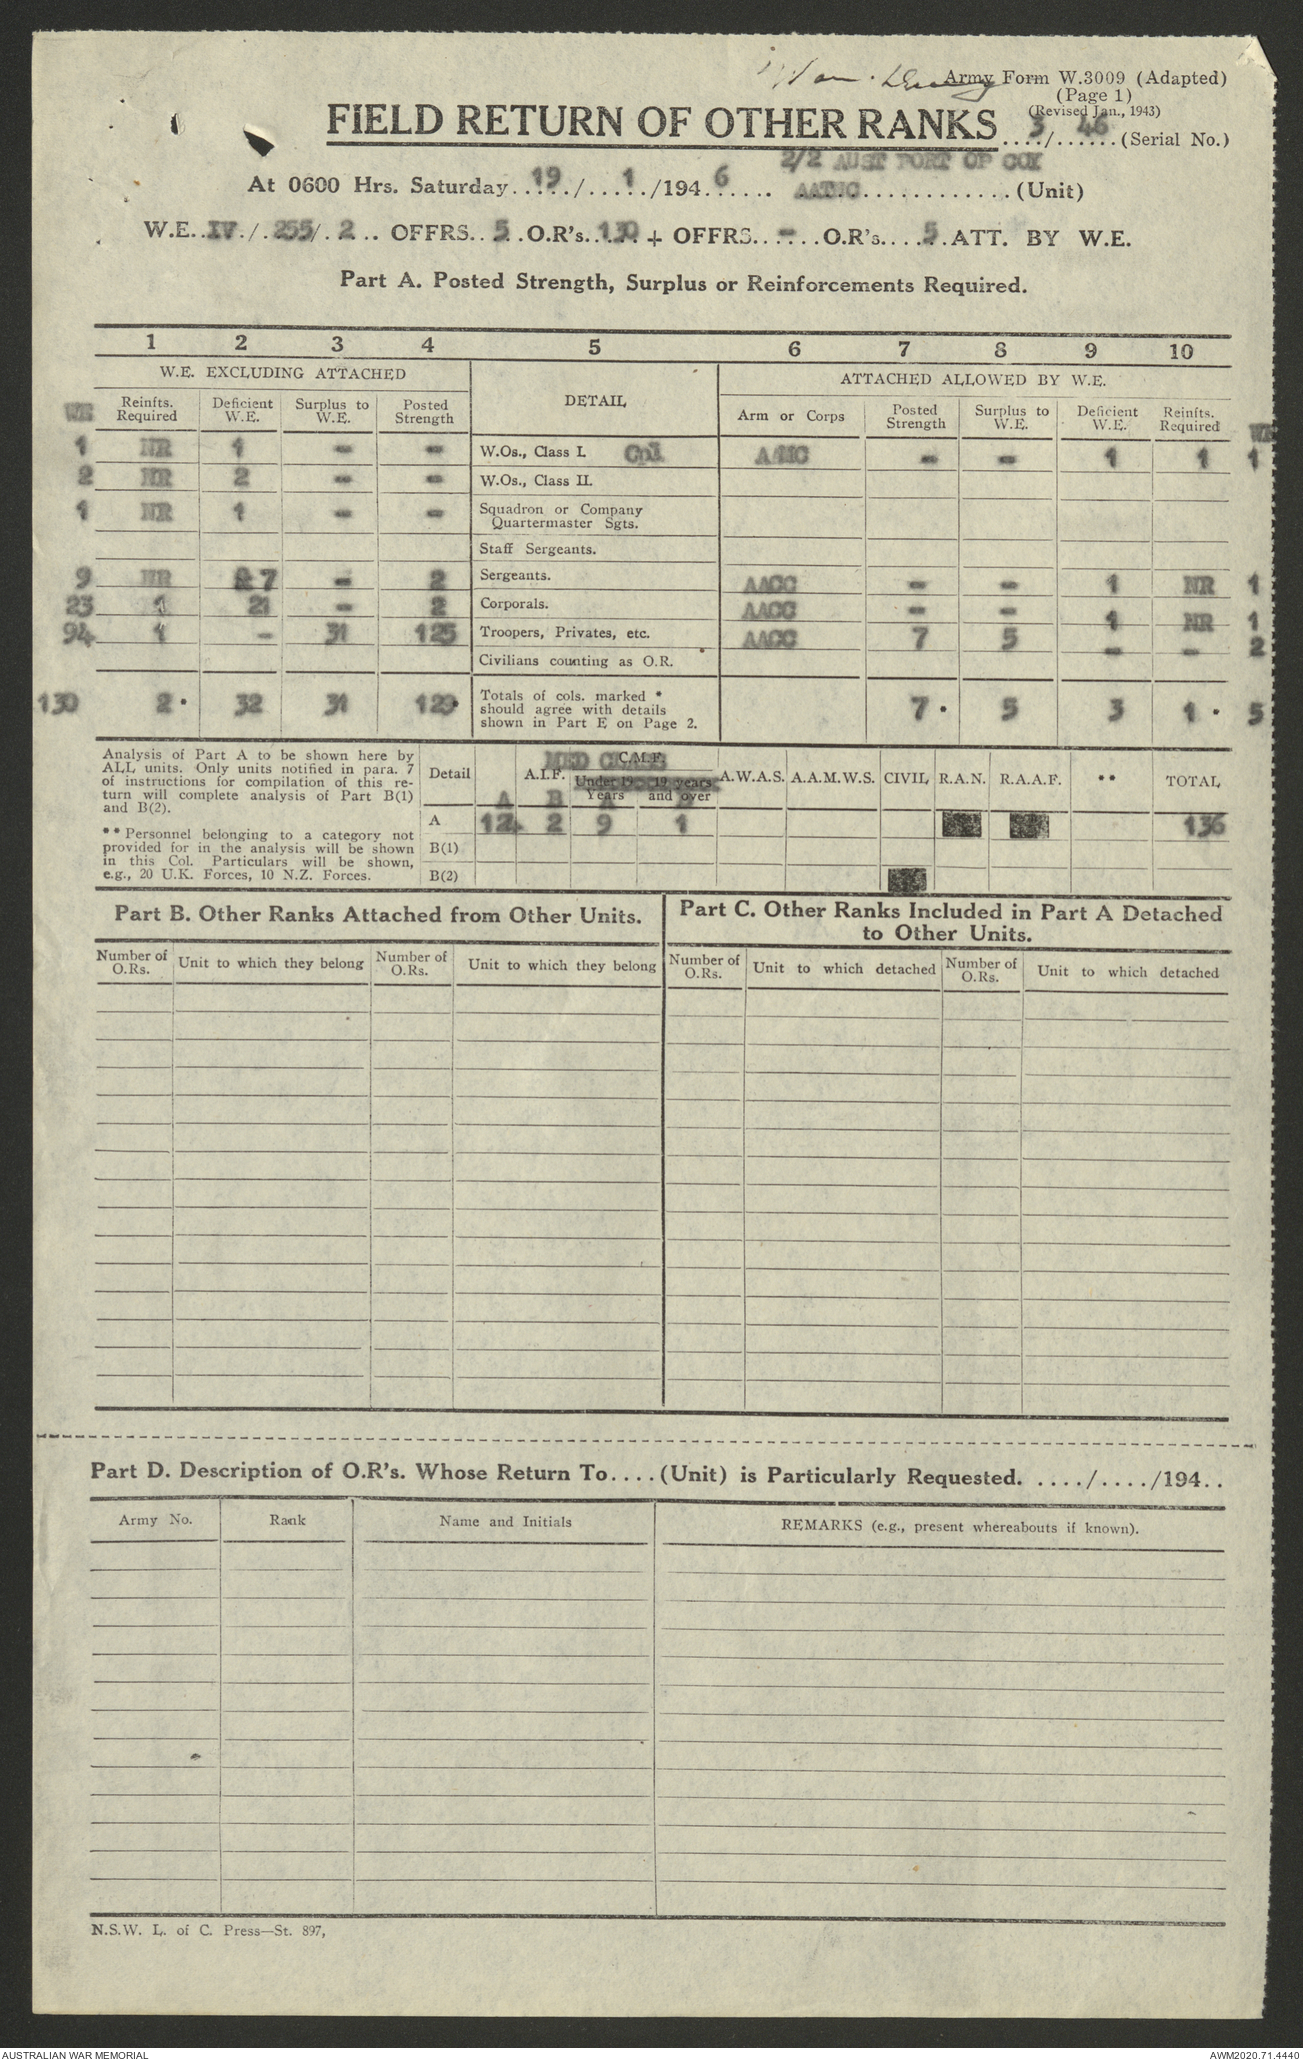 War Diary
Army Form W.3009 (Adapted)
(Page 1)
(Revised Jan., 1943)
FIELD RETURN OF OTHER RANKS....3/...46...(Serial No.)
2/2 AUST PORT OP COY
At 0600 Hrs. Saturday..19./....1./194.6..... AATNC............(Unit)
W.E..IV./.255/.2... OFFRS..5..O.R's..130 + OFFRS..-...O.R's....5.ATT. BY W.E.
Part A. Posted Strength, Surplus or Reinforcements Required.
1 2 3 4 5 6 7 8 9 10
W.E. EXCLUDING ATTACHED DETAIL ATTACHED ALLOWED BY W.E.
WE Reinfts. Required Deficient W.E. Surplus to W.E. Posted Strength Arm or Corps Posted Strength Surplus to W.E. Deficient W.E. Reinfts. Required WE
1 NR 1 - - W.Os., Class I. Cpl AAMC - - 1 1 1
2 NR 2 - - W.Os., Class II.
1 NR 1 - - Squadron or Company Quartermaster Sgts.
Staff Sergeants.
9 NR 7 - 2 Sergeants. AACC - - 1 NR 1
23 1 21 - 2 Corporals. AACC - - 1 NR 1
94 1 - 31 125 Troopers, Privates, etc. AACC 7 5 - - 2
Civilians counting as O.R.
130 2 * 32 31 129* Totals of cols. marked * should agree with details shown in Part E on Page 2. 7 * 5 3 1 * 5
Analysis of Part A to be shown here by
ALL units. Only units notified in para. 7
of instructions for compilation of this re-
turn will complete analysis of Part B(1)
and B(2).
** Personnel belonging to a category not
provided for in the analysis will be shown
in this Col. Particulars will be shown,
e.g., 20 U.K. Forces, 10 N.Z. Forces.
MED CLASS
Detail A.I.F. C.M.F. Under 19 Years 19 years and over A.W.A.S. A.A.M.W.S. CIVIL R.A.N. R.A.A.F. ** TOTAL
A B A B
A 124 2 9 1 136
B(1)
B(2)
Part B. Other Ranks Attached from Other Units.
Part C. Other Ranks Included in Part A Detached
to Other Units.
Number of O.Rs. Unit to which they belong Number of O.Rs. Unit to which they belong Number of O.Rs. Unit to which detached Number of O.Rs. Unit to which detached
Part D. Description of O.R's. Whose Return To....(Unit) is Particularly Requested. ..../..../194..
Army No. Rank Name and Initials REMARKS (e.g., present whereabouts if known).
N.S.W. L. of C. Press—St. 897,
AUSTRALIAN WAR MEMORIAL AWM2020.71.4440